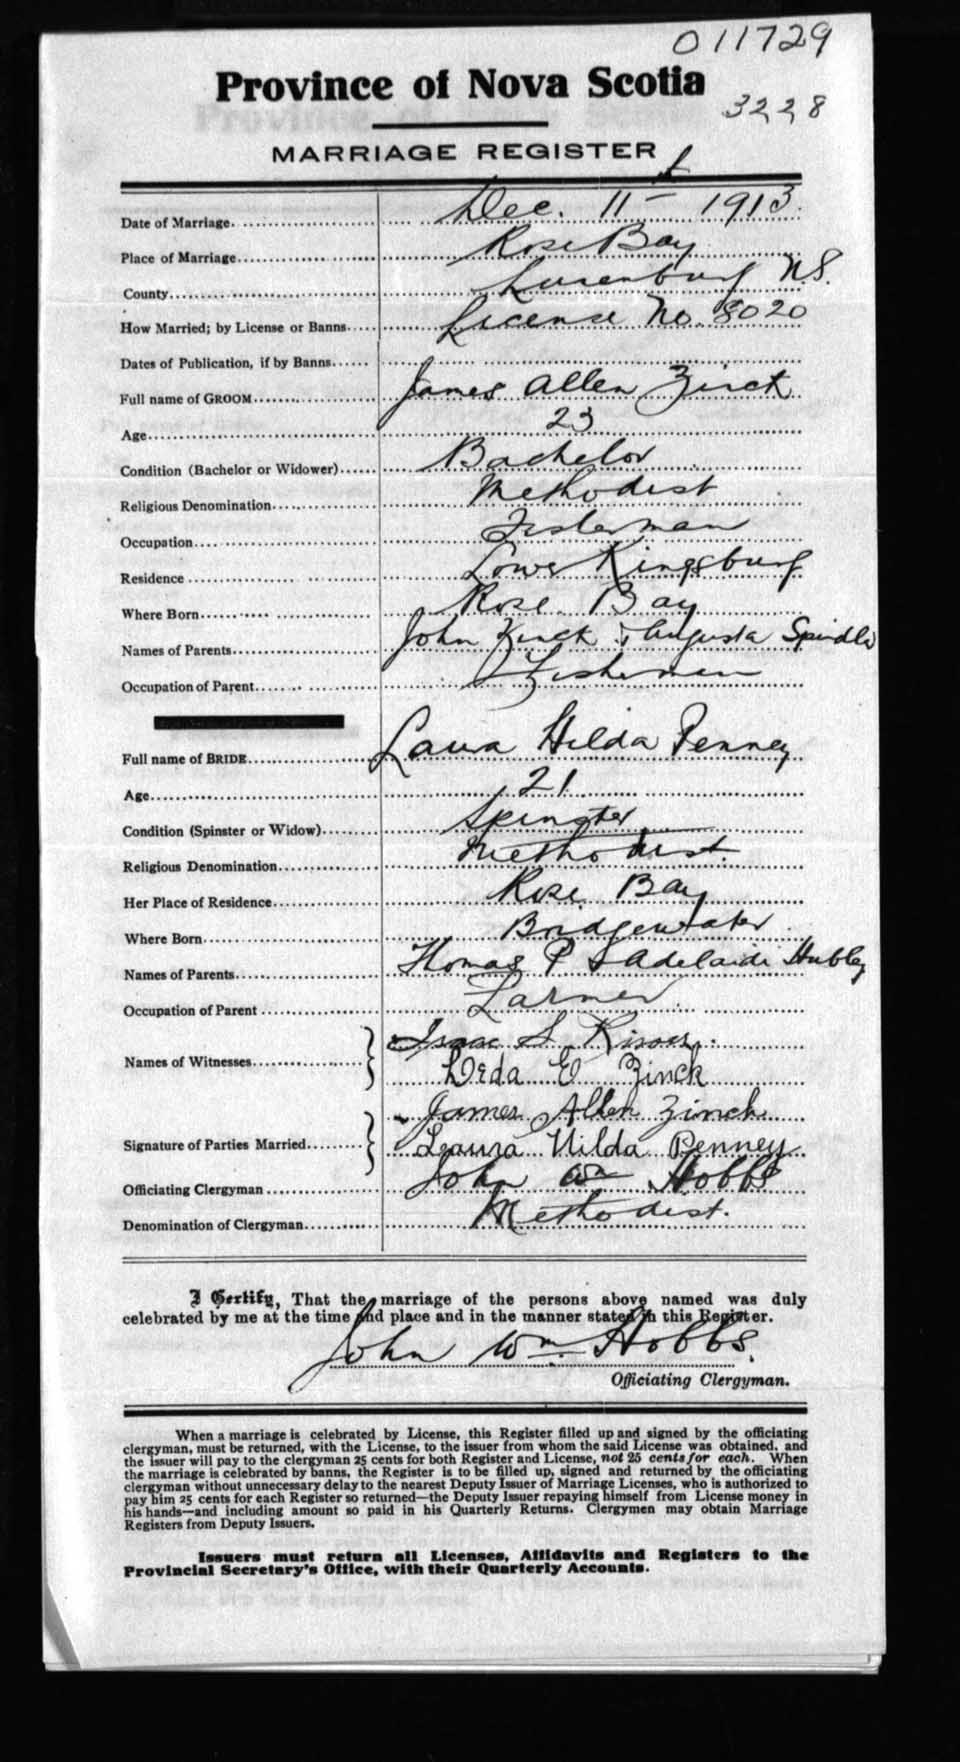 011729
Province of Nova Scotia
3228
MARRIAGE REGISTER
Date of Marriage. Dec. 11t 1913.
Place of Marriage Rose Bay
County Lunenburg N.S.
How Married; by License or Banns License No. 8020
Dates of Publication, if by Banns
Full name of GROOM James Allen Zinck
Age 23
Condition (Bachelor or Widower) Bachelor
Religious Denomination Methodist
Occupation Fisherman
Residence Lower Kingsburg
Where Born Rose Bay
Names of Parents John Zinck & Augusta Spindler
Occupation of Parent Fisherman
Full name of BRIDE Laura Hilda Penney
Age 21
Condition (Spinster or Widow) Spinster
Religious Denomination Methodist.
Her Place of Residence Rose Bay
Where Born Bridgewater
Names of Parents Thomas P & Adelaide Hubley
Occupation of Parent Farmer
Isaac S.
Names of Witnesses
Leda E Zinck
James Allen Zinck
Signature of Parties Married
Laura Hilda Penney
Officiating Clergyman John Wm Hobbs
Denomination of Clergyman Methodist.
I Certify, That the marriage of the persons above named was duly
celebrated by me at the time and place and in the manner stated in this Register.
John Wm. Hobbs.
Officiating Clergyman.
When a marriage is celebrated by License, this Register filled up and signed by the officiating
clergyman, must be returned, with the License, to the issuer from whom the said License was obtained, and
the issuer will pay to the clergyman 25 cents for both Register and License, not 25 cents for each. When
the marriage is celebrated by banns, the Register is to be filled up, signed and returned by the officiating
clergyman without unnecessary delay to the nearest Deputy Issuer of Marriage Licenses, who is authorized to
pay him 25 cents for each Register so returned—the Deputy Issuer repaying himself from License money in
his hands—and including amount so paid in his Quarterly Returns. Clergymen may obtain Marriage
Registers from Deputy Issuers.
Issuers must return all Licenses, Affidavits and Registers to the
Provincial Secretary's Office, with their Quarterly Accounts.